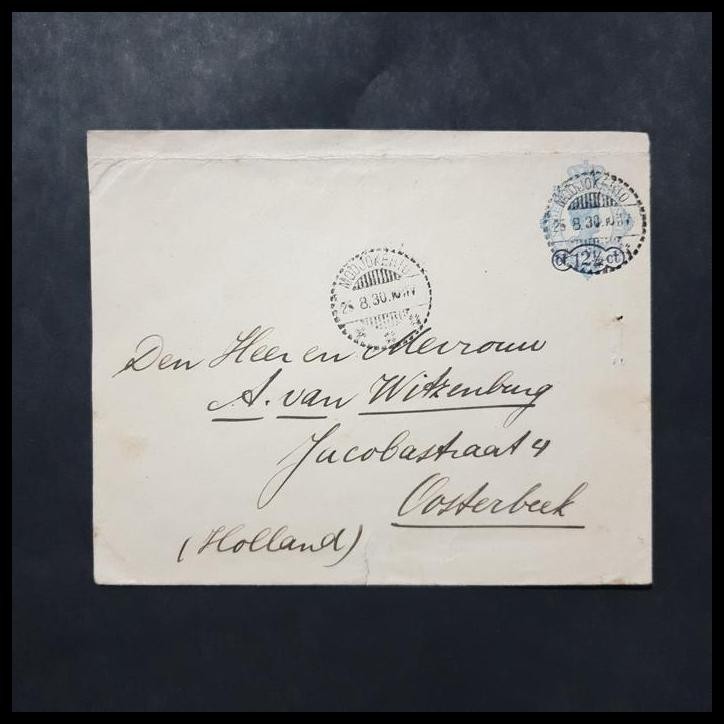 MODJOKERTO
25 8.30.10-11V
ct 12½ ct
MODJOKERTO
25 8.30.10-11V
Den Heer en Mevrouw
A. van Witzenburg
Jacobastraat 4
Oosterbeek
(Holland)